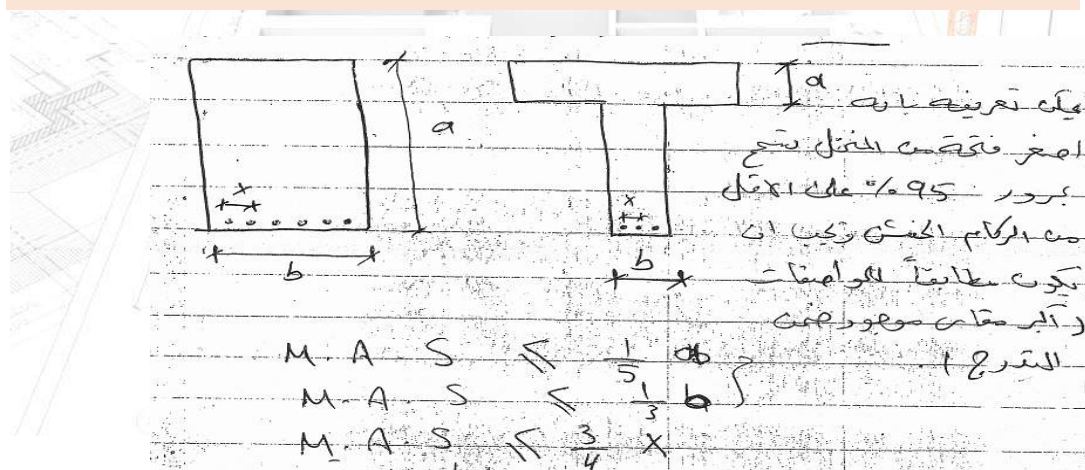 يمكن تعريفه بانه
اصغر فتحة من المنخل تسمح
بمرور 95% على الاقل
من الركام الخشن ويجب ان
يكون مطابقاً للمواصفات
و اكبر مقاس موجود ضمن
التدرج ) .
a
a
x
x
b
b
M. A. S ≤ 1/5
M. A. S ≤ 1/3 b
M. A. S ≤ 3/4 x